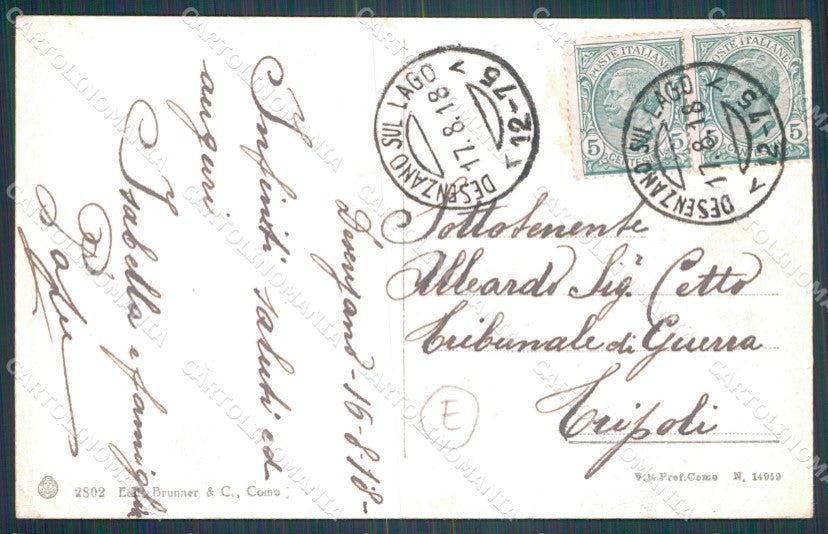 Desenzano - 16-8-18-
Infiniti saluti ed
auguri
Isabella e famiglia
Sottotenente
Alleardo Sigr. Cetto
Tribunale di Guerra
Tripoli
E
DESENZANO SUL LAGO
17.8.18
12-75
POSTE ITALIANE
5 CENTESIMI 5
POSTE ITALIANE
5 CENTESIMI 5
DESENZANO SUL LAGO
17.8.18
12-75
2802 Ed. Brunner & C., Como
V. R. Pref. Como N. 14959
CARTOLINOMANIA